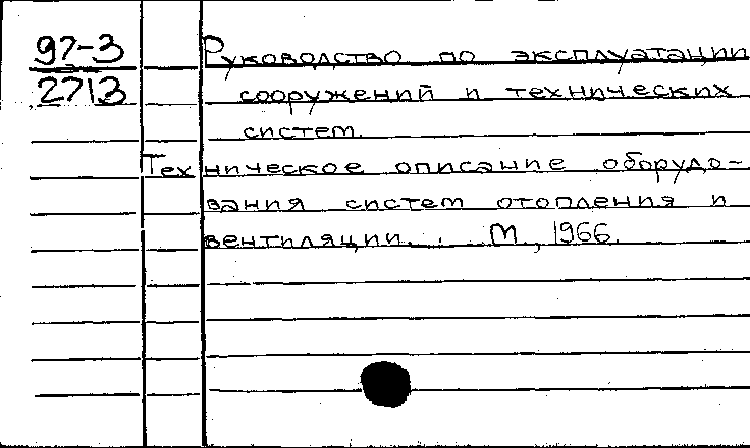 97-3 Руководство по эксплуатации
2713 сооружений и технических
систем.
Техническое описание оборудо-
вания систем отопления и
вентиляции. . М, 1966.